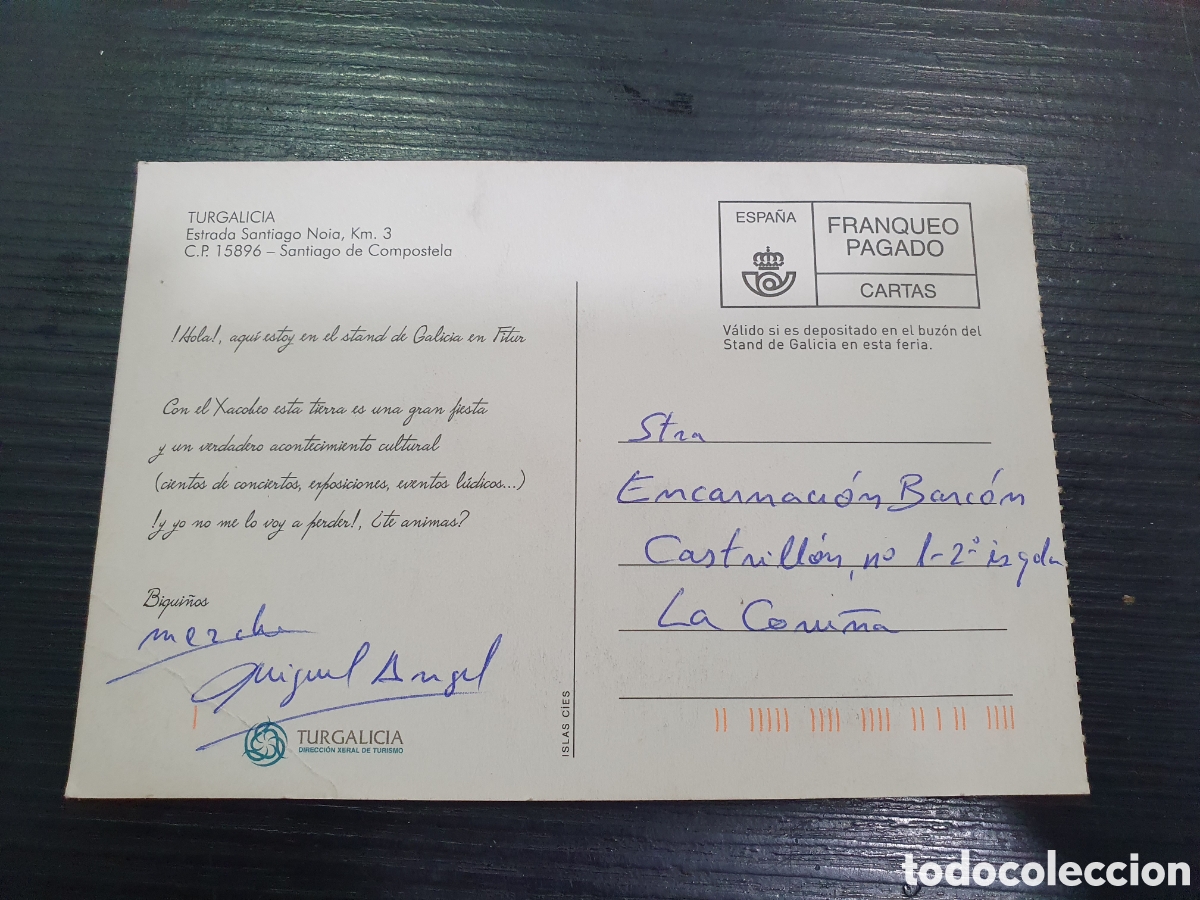 TURGALICIA
Estrada Santiago Noia, Km. 3
C.P. 15896 – Santiago de Compostela
¡Hola!, aquí estoy en el stand de Galicia en Fitur
Con el Xacobeo esta tierra es una gran fiesta
y un verdadero acontecimiento cultural
(cientos de conciertos, exposiciones, eventos lúdicos...)
¡y yo no me lo voy a perder!, ¿te animas?
Biquiños
Merche
Miguel Angel
TURGALICIA
DIRECCIÓN XERAL DE TURISMO
ISLAS CÍES
ESPAÑA
FRANQUEO
PAGADO
CARTAS
Válido si es depositado en el buzón del
Stand de Galicia en esta feria.
Stra
Encarnación Barcón
Castrillón, nº 1-2º izqda
La Coruña
todocoleccion